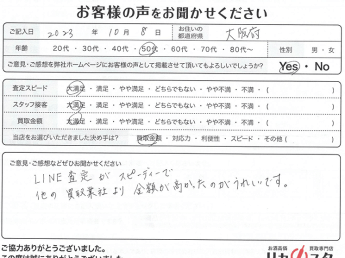 お客様の声をお聞かせください
ご記入日 2023 年 10 月 8 日 お住いの都道府県 大阪府
年齢 20代・30代・40代・50代・60代・70代・80代～ 性別 男・女
ご意見・ご感想を弊社ホームページにお客様の声として掲載させて頂いてもよろしいでしょうか? Yes・No
査定スピード 大満足・満足・やや満足・どちらでもない・やや不満・不満・( )
スタッフ接客 大満足・満足・やや満足・どちらでもない・やや不満・不満・( )
買取金額 大満足・満足・やや満足・どちらでもない・やや不満・不満・( )
当店をお選びいただきました決め手は? 買取金額・対応力・利便性・スピード・その他( )
ご意見・ご感想などぜひお聞かせください
LINE査定がスピーディーで
他の買取業社より金額が高かったのがうれしいです。
ご協力ありがとうございました。
お酒品価 買取専門店